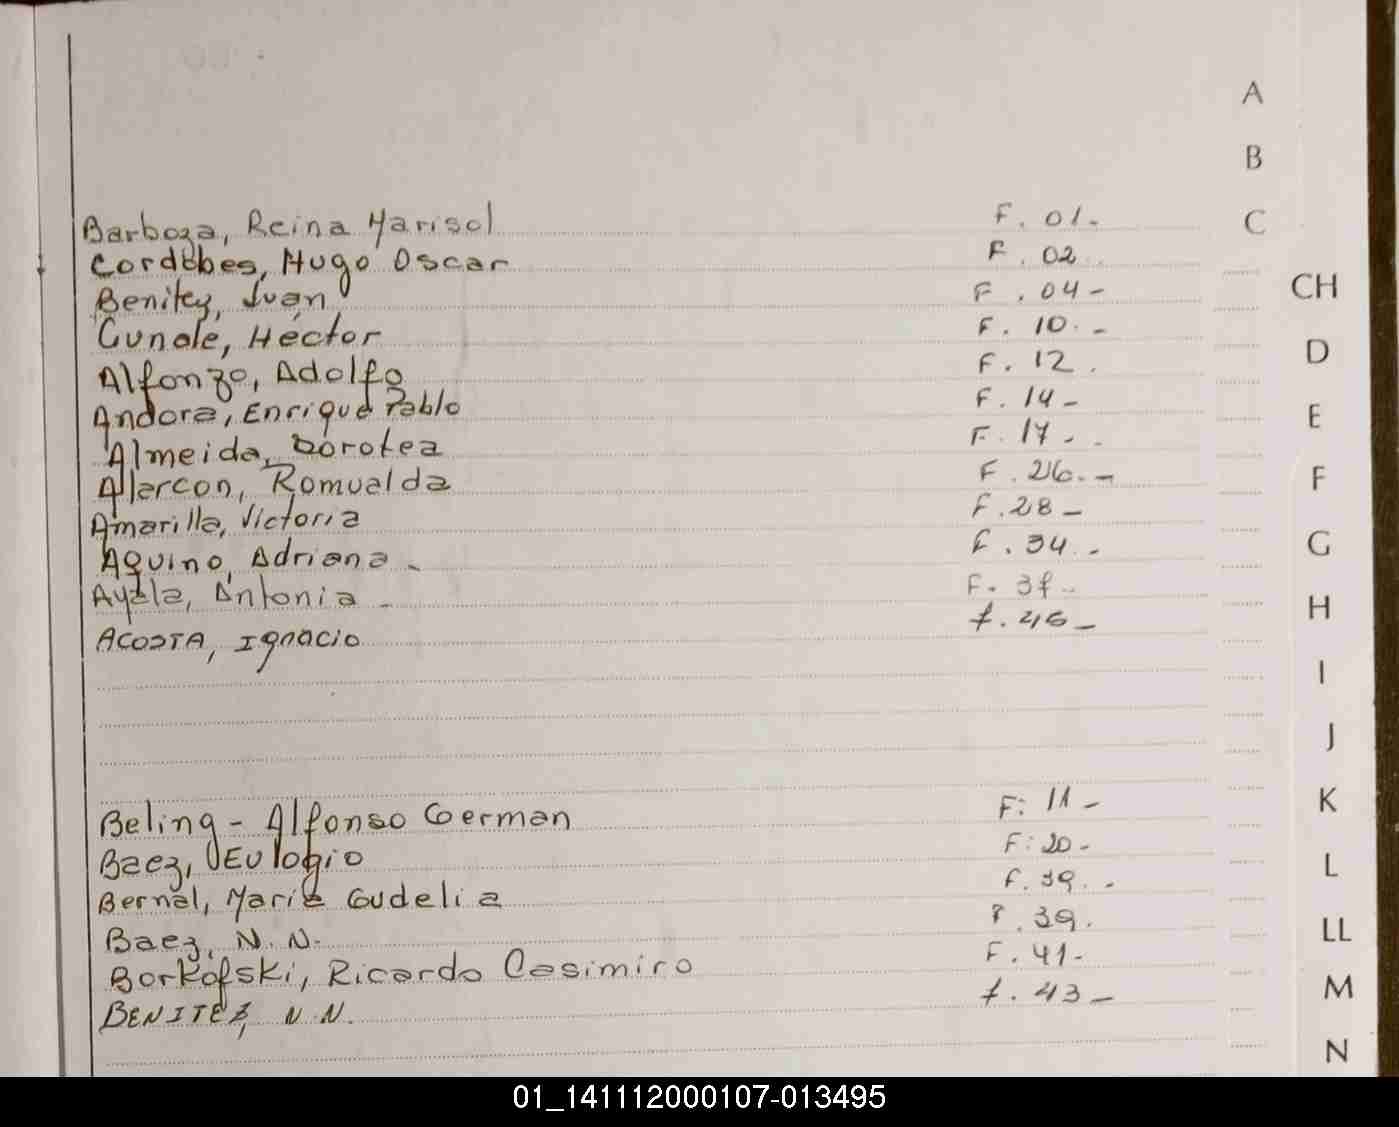 A
B
C
CH
D
E
F
G
H
I
J
K
L
LL
M
N
Barboza, Reina Marisol F. 01.-
Cordobes, Hugo Oscar F. 02
Benitez, Juan F. 04-
Cunale, Héctor F. 10. -
Alfonzo, Adolfo F. 12.
Andora, Enrique Pablo F. 14-
Almeida, Dorotea F. 17. -
Alarcon, Romualda F. 26. -
Amarilla, Victoria F. 28-
Aquino, Adriana - F. 34. -
Ayala, Antonia - F. 37.
ACOSTA, Ignacio f. 46-
Beling - Alfonso German F: 11-
Baez, Eulogio F: 20-
Bernal, Maria Gudelia F. 39. -
Baez, N. N. F. 39.
Borkofski, Ricardo Casimiro F. 41-
BENITEZ, N N. f. 43-
01_141112000107-013495